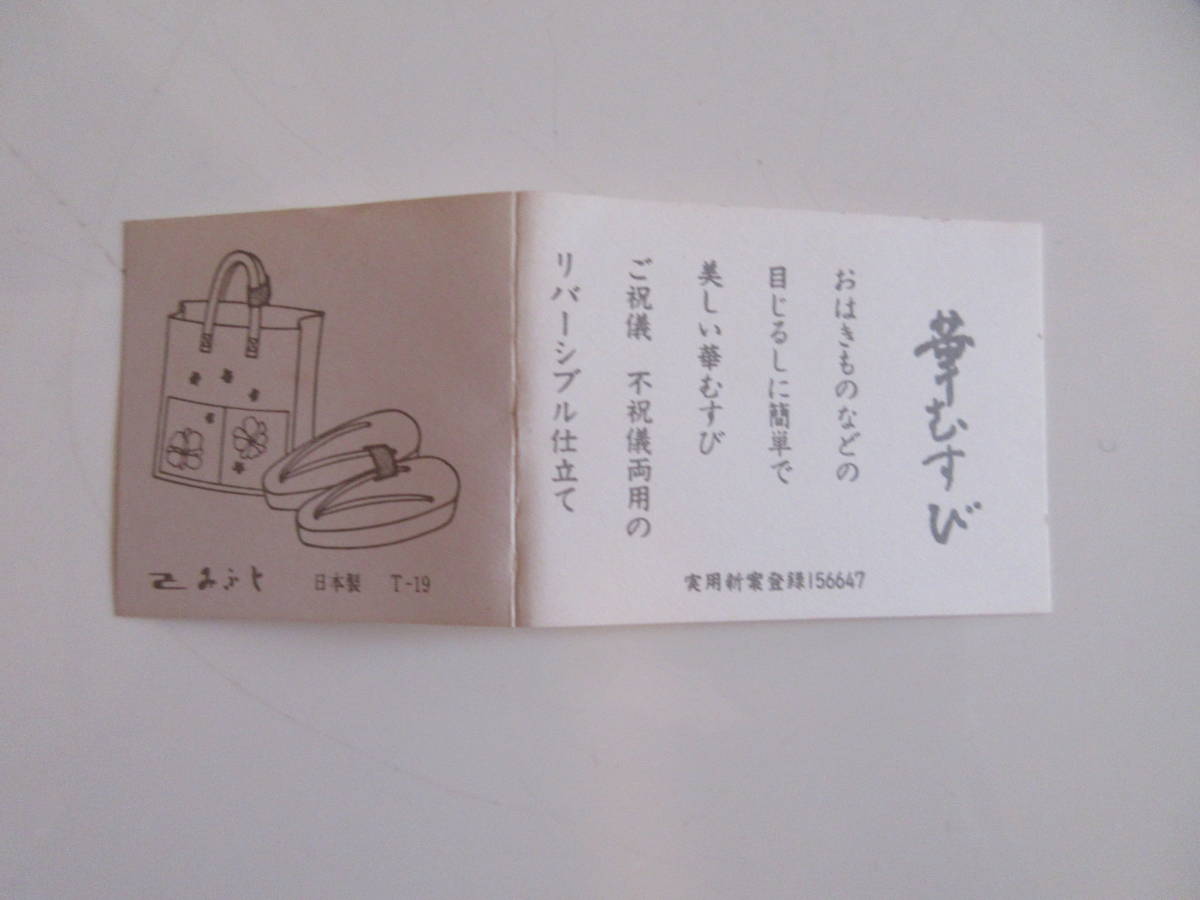 華むすび
おはきものなどの
目じるしに簡単で
美しい華むすび
ご祝儀 不祝儀両用の
リバーシブル仕立て
実用新案登録156647
日本製 T-19